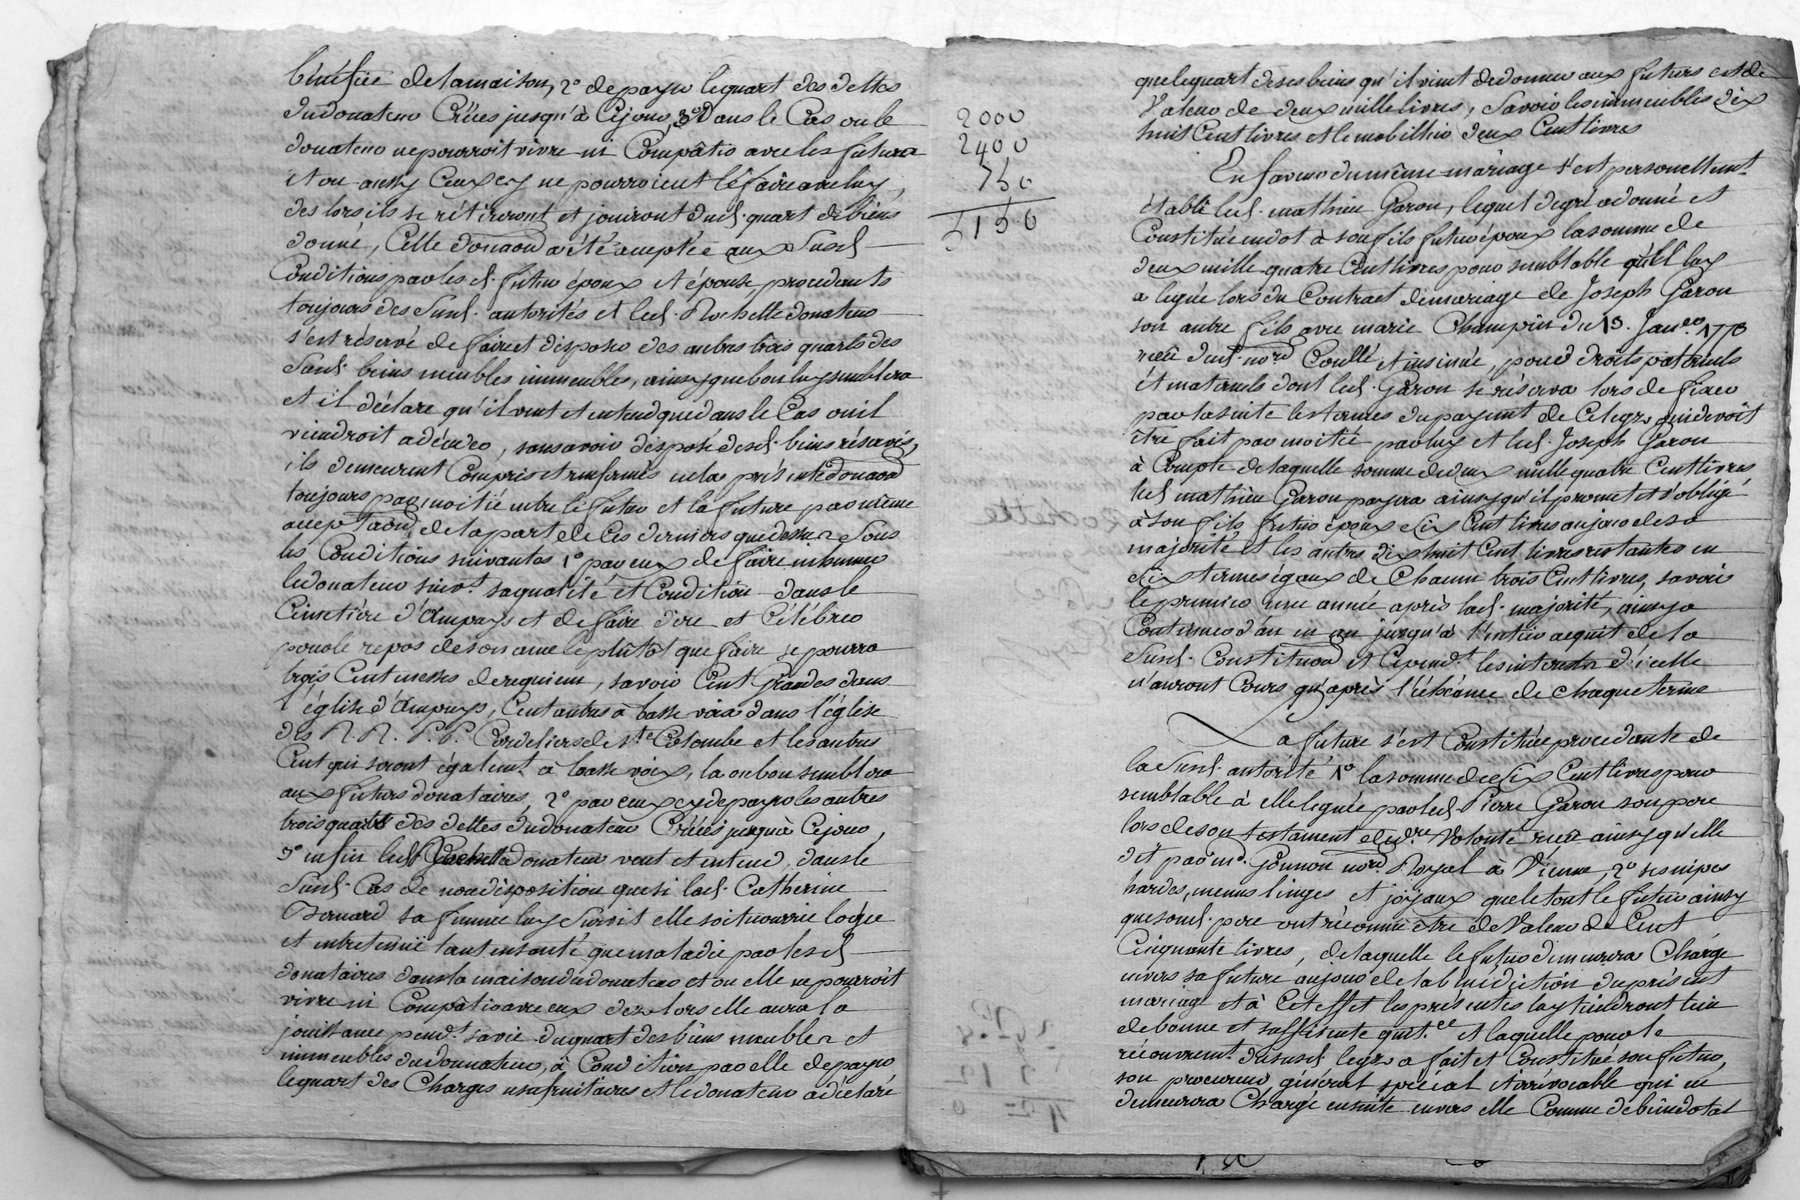 bénéfice de la maison, 2° de payer le quart des dettes
du donateur Créées jusqu'à Ce jour, 3° Dans le Cas ou le
donateur ne pourroit vivre ni Compâtir avec les futurs
et ou aussy Ceux cy ne pourroient le faire avec luy,
des lors ils se rétireront et jouiront dud. quart de biens
donné, Cette donaon a été acceptée aux Susd
Conditions par les d. futur époux et épouse procedants
toujours des Susd. autorités et led. Rochette donateur
s'est réservé de faire et disposer des autres trois quarts des
Susd. biens meubles immeubles, ainsy que bon luy semblera
et il déclare qu'il veut et entend que dans le Cas ou il
viendroit a décéder, sans avoir disposé desd. biens réservés,
ils demeurent Compris et renfermés en la présente donaon
toujours par moitié entre le futur et la future par même
acceptaon, de la part de Ces derniers que dessus Sous
les Conditions suivantes 1° par eux de faire inhumer
le donateur suivt. sa qualité et Condition dans le
Cimetière d'Ampuys et de faire dire et Célébrer
pour le repos de son ame le plûtot que faire se pourra
trois Cent messes de requiem, savoir Cent grandes dans
l'église d'Ampuys, Cent autres à basse voix dans l'église
des R. R. P. P. Cordeliers de Ste Colombe et les autres
Cent qui seront égalemt. à basse voix, la ou bon semblera
aux futurs donataires, 2° par eux cy de payer les autres
trois quarts des dettes du donateur Créées jusqu'à Ce jour,
3° enfin led Rochette donateur veut et entend, dans le
Susd. Cas de non disposition que si lad. Catherine
Bernard sa femme luy Survit elle soit nourrie logée
et entretenüe tant en santé que maladie par lesd
donataires dans la maison du donateur et ou elle ne pourroit
vivre ni Compâtir avec eux des lors elle aura la
jouissance pendt. sa vie du quart des biens meubles et
immeubles du donnateur, à Condition par elle de payer
le quart des Charges usufruitaires et le donateur a déclaré
2000
2400
750
5150
que le quart de ses biens qu'il vient de donner aux futurs est de
Valeur de deux mille livres, Savoir les immeubles dix
huit Cent livres et le mobillier deux Cent livres
En faveur du même mariage s'est personellemt.
établi led. mathieu Garon, lequel de gré a donné et
Constitué en dot à son fils futur époux la somme de
deux mille quatre Cent livres pour semblable qu'il luy
a leguée lors du Contract de mariage de Joseph Garon
son autre fils avec marie Champin du 13. Janer 1773
reçu dud. nore Coullé et insinué, pour droits paternels
et maternels dont led. Garon se réserva lors de fixer
par la suite les termes du payemt de Ce legs, qui devoit
être fait par moitié par luy et led. Joseph Garon
à Compte de laquelle somme de deux mille quatre Cent livres
led mathieu Garon payera ainsy qu'il promet et s'obligé
à son fils futur époux six Cent livres au jour de sa
majorité et les autres dix huit Cent livres restantes en
six termes égaux de Chacun trois Cent livres, savoir
le premier une année après lad. majorité, ainsy a
Continuer d'an en an jusqu'à l'entier acquit de la
Susd. Constitution et Cepend.t les interests d'icelle
n'auront Cours qu'après l'échéance de chaque terme
La future s'est Constituée procedante de
la Susd. autorité 1° la somme de six Cent livres pour
semblable à elle leguée par led Pierre Garon son pere
lors de son testament et dre Volonté reçu ainsy qu'elle
dit par me. Gounon nore Royal à Vienne, 2° ses nipes
hardes, menus linges et joyaux que le tout le futur ainsy
que sond. pere ont réconnu être de Valeur de Cent
Cinquante livres, de laquelle le futur demeurera Chargé
envers sa future au jour de la bénédiction du présent
mariage et à Cet effet les présentes luy tiendront lieu
de bonne et suffisente quit.ce et laquelle pour le
récouvremt. du susd. legs a fait et Constitué son futur,
son procureur, général spécial et irrévocable qui en
demeurera Chargé ensuite envers elle Comme de bien dotal